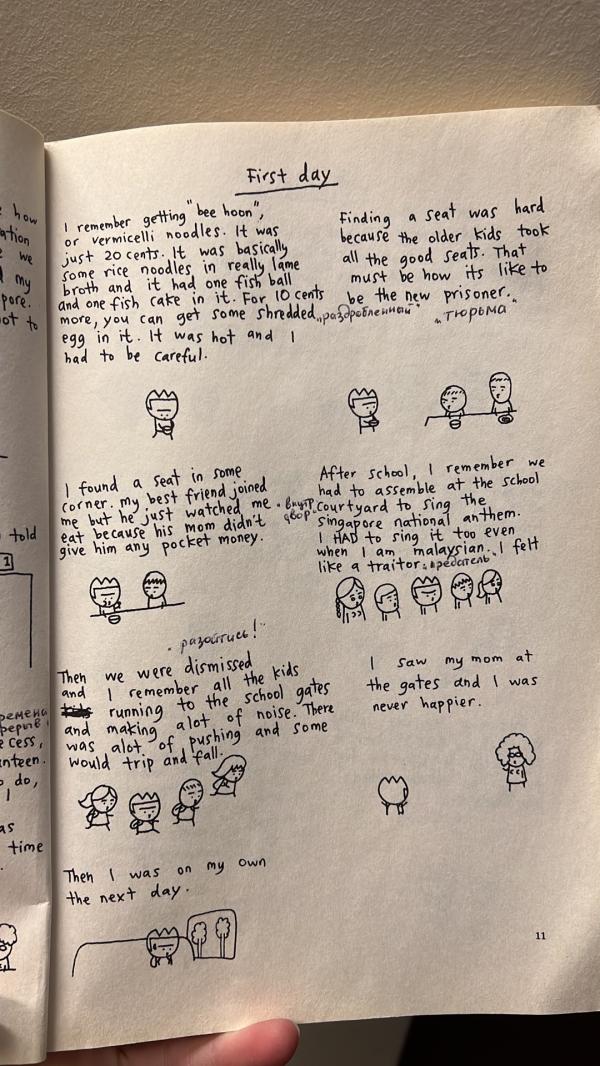 First day
I remember getting "bee hoon",
or vermicelli noodles. It was
just 20 cents. It was basically
some rice noodles in really lame
broth and it had one fish ball
and one fish cake in it. For 10 cents
more, you can get some shredded „раздробленный"
egg in it. It was hot and I
had to be careful.
Finding a seat was hard
because the older kids took
all the good seats. That
must be how its like to
be the new prisoner.
„тюрьма"
I found a seat in some
corner. my best friend joined
me but he just watched me
eat because his mom didn't
give him any pocket money.
After school, I remember we
had to assemble at the school
внутр. двор. courtyard to sing the
singapore national anthem.
I HAD to sing it too even
when I am malaysian. I felt
like a traitor. предатель
разойтись!"
Then we were dismissed
and I remember all the kids
running to the school gates
and making alot of noise. There
was alot of pushing and some
would trip and fall.
I saw my mom at
the gates and I was
never happier.
Then I was on my own
the next day.
11
how
ation
we
my
pore.
ot to
told
1
ремена
рерыв
cess,
nteen.
do,
I
as
time